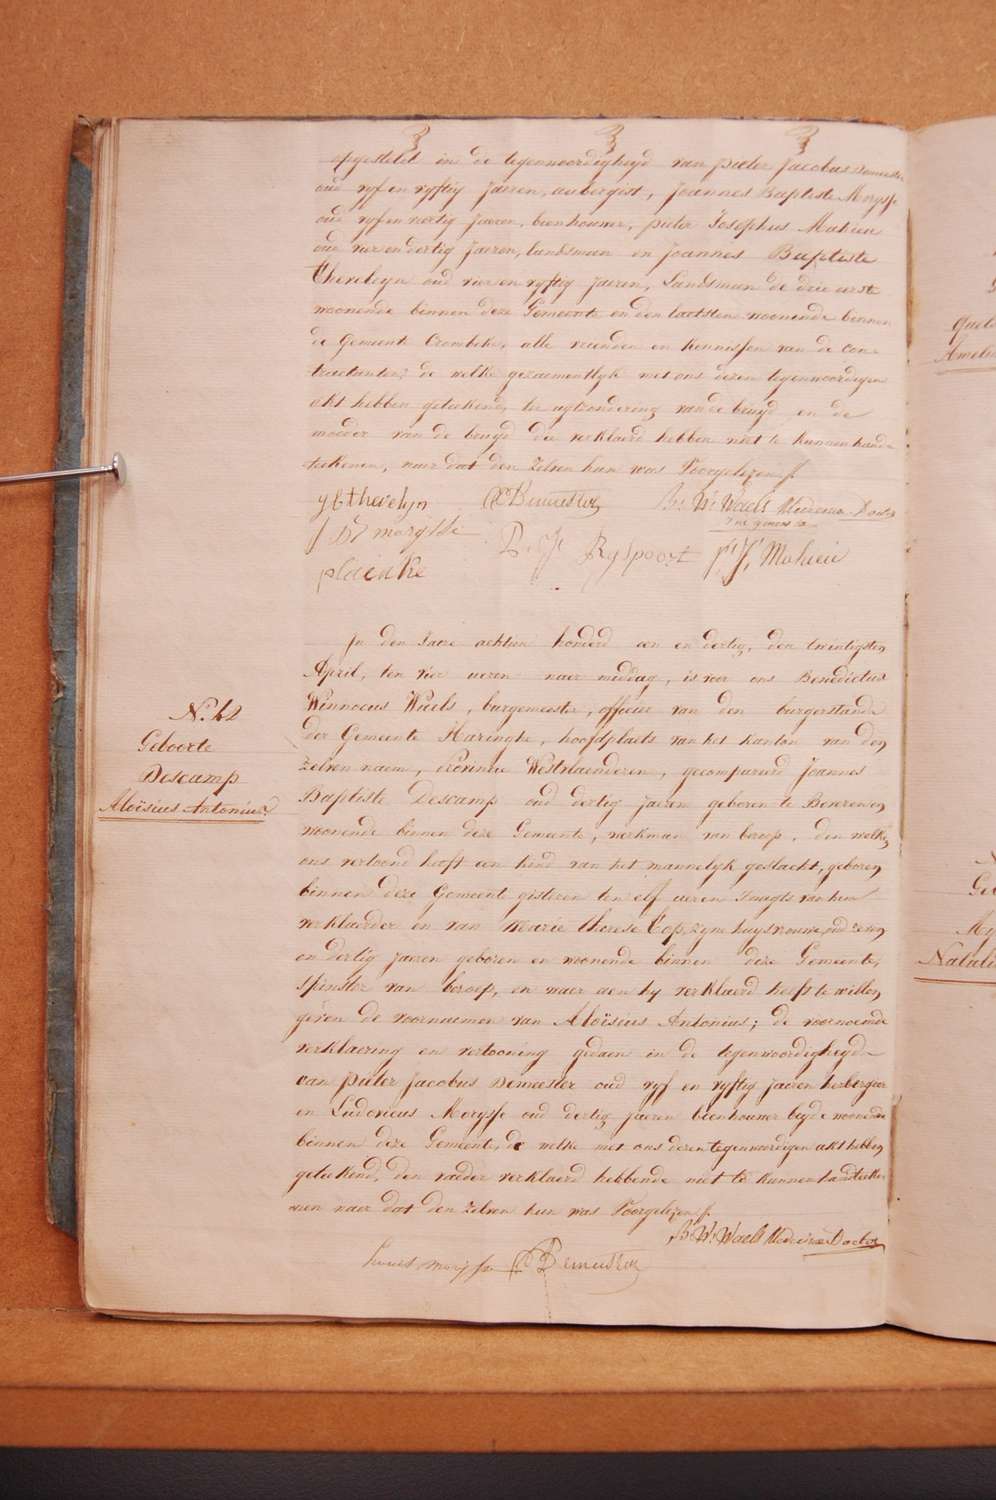 opgesteld in de tegenwoordigheyd van pieter Jacobus Demeester
oud vyf en vyftig jaeren, aubergist, Joannes Baptiste Morysse
oud vyf en veertig jaeren, beenhouwer, pieter Josephus Mahieu
oud vier en dertig jaeren, landsman en Joannes Baptiste
Therelyn oud vier en vyftig jaeren, landsman de drie eerste
woonende binnen deze Gemeente en den laetsten woonende binnen
de Gemeente Crombeke, alle vrienden en kennissen van de con-
tractanten; de welke gezaementlyk met ons dezen tegenwoordigen
akt hebben geteekend, ter uytzondering van de bruyd en de
moeder van de bruyd die verklaerd hebben niet te kunnen hand-
teekenen, naer dat den zelven hun was Voorgelezen /.
J B therelyn P J Demeester B. W. Waels Medecinae Doctor
J B morysse P. J. Ryspoort P. J. Mahieu
plaenke
In den Jaere achtien honderd een en dertig, den twintigsten
April, ten vier ueren naer middag, is voor ons Benedictus
Winnocus Waels, burgemeester, officier van den burgerstande
der Gemeente Haringhe, hoofdplaets van het kanton van den
zelven naem, provincie Westvlaenderen, gecompareerd Joannes
Baptiste Descamp oud dertig jaeren geboren te Beveren en
woonende binnen deze Gemeente, werkman van beroep, den welken
ons vertoond heeft een kind van het mannelyk geslacht, geboren
binnen deze Gemeente gisteren ten elf ueren s'nagts van hem
verklaerder en van Marie Therese Cop zyne huysvrouwe oud zeven
en dertig jaeren geboren en woonende binnen deze Gemeente,
spinster van beroep, en waer aen hy verklaerd heeft te willen
geven de voornaemen van Aloïsius Antonius; de voornoemde
verklaering en vertooning gedaen in de tegenwoordigheyd
van pieter Jacobus Demeester oud vyf en vyftig jaeren herbergier
en Ludovicus Morysse oud dertig jaeren beenhouwer beyde woonende
binnen deze Gemeente, de welke met ons dezen tegenwoordigen akt hebben
geteekend, den vader verklaerd hebbende niet te kunnen handteeke-
nen naer dat den zelven hun was Voorgelezen /.
B. W. Waels Medecinae Doctor
Louis morysse P J Demeester
N. 42
Geboorte
Descamp
Aloïsius Antonius